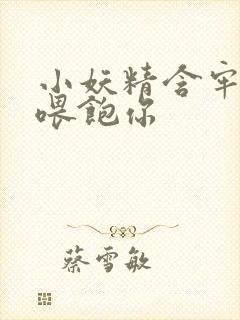 小妖精含牢
喂飽你
蔡雪敏